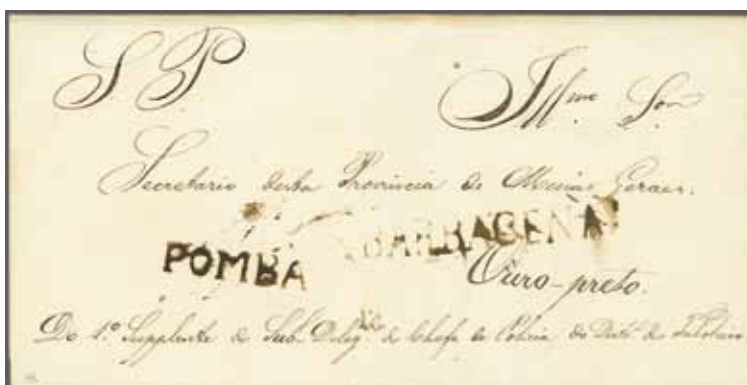 S. P. Illmo Snr
Secretario desta Provincia de Minas Geraes.
POMBA BARBACENA
Ouro-preto.
Do 1º Supplente do Sub. Delegdo do Chefe de Policia do